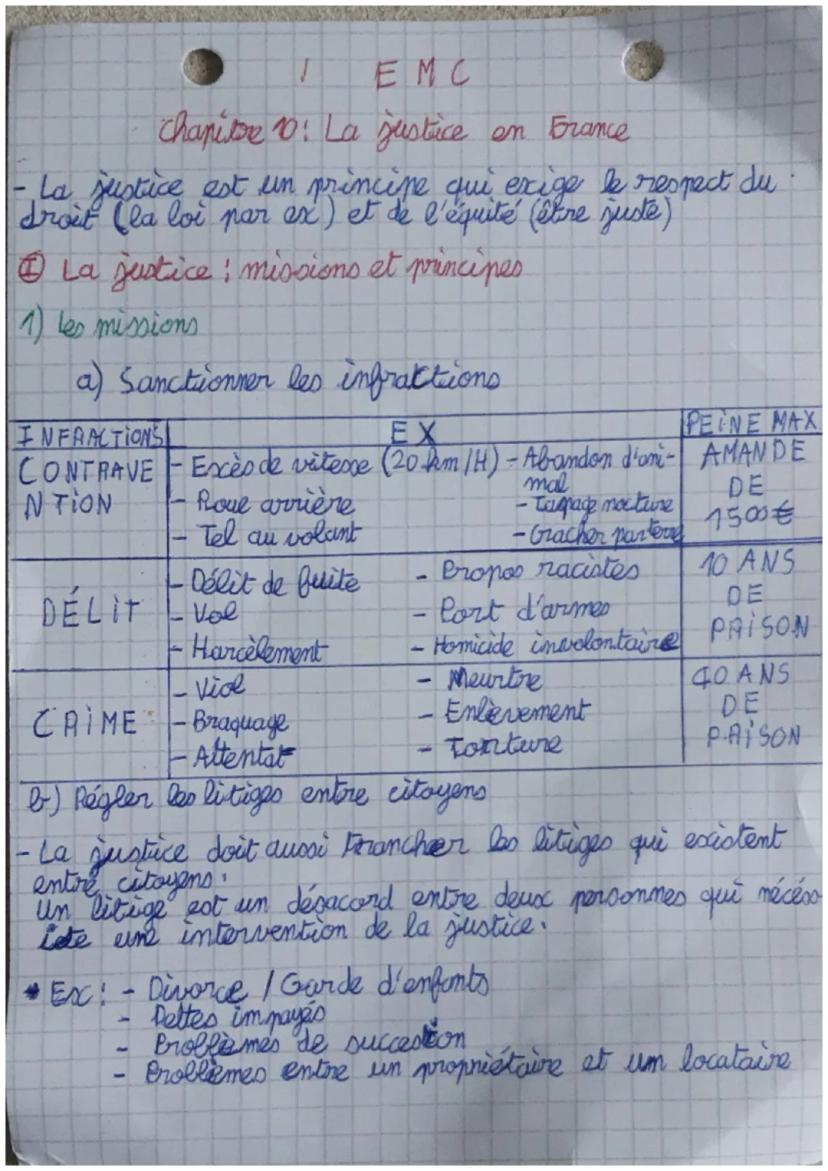 1 EMC
Chapitre 10: La justice en France
- La justice est un principe qui exige le respect du
droit (la loi par ex) et de l'équité (être juste)
I La justice : missions et principes
1) les missions
a) Sanctionner les infractions
INFRACTIONS EX PEINE MAX
CONTRAVE - Excès de vitesse (20 km/H) - Abandon d'ani- AMANDE
mal DE
NTION - Roue arrière - Tapage nocture 1500€
- Tel au volant - Cracher par terre
- Délit de fuite - Propos racistes 10 ANS
DÉLIT - Vol - Port d'armes DE
- Harcèlement - Homicide involontaire PRISON
- Viol - Meurtre 40 ANS
CRIME - Braquage - Enlèvement DE
- Attentat - Torture PRISON
b) Régler les litiges entre citoyens
- La justice doit aussi trancher les litiges qui existent
entre citoyens.
Un litige est un désacord entre deux personnes qui nécéss
ite une intervention de la justice.
* Ex: - Divorce / Garde d'enfants
- Dettes impayés
- Problèmes de succession
- Problèmes entre un propriétaire et um locataire